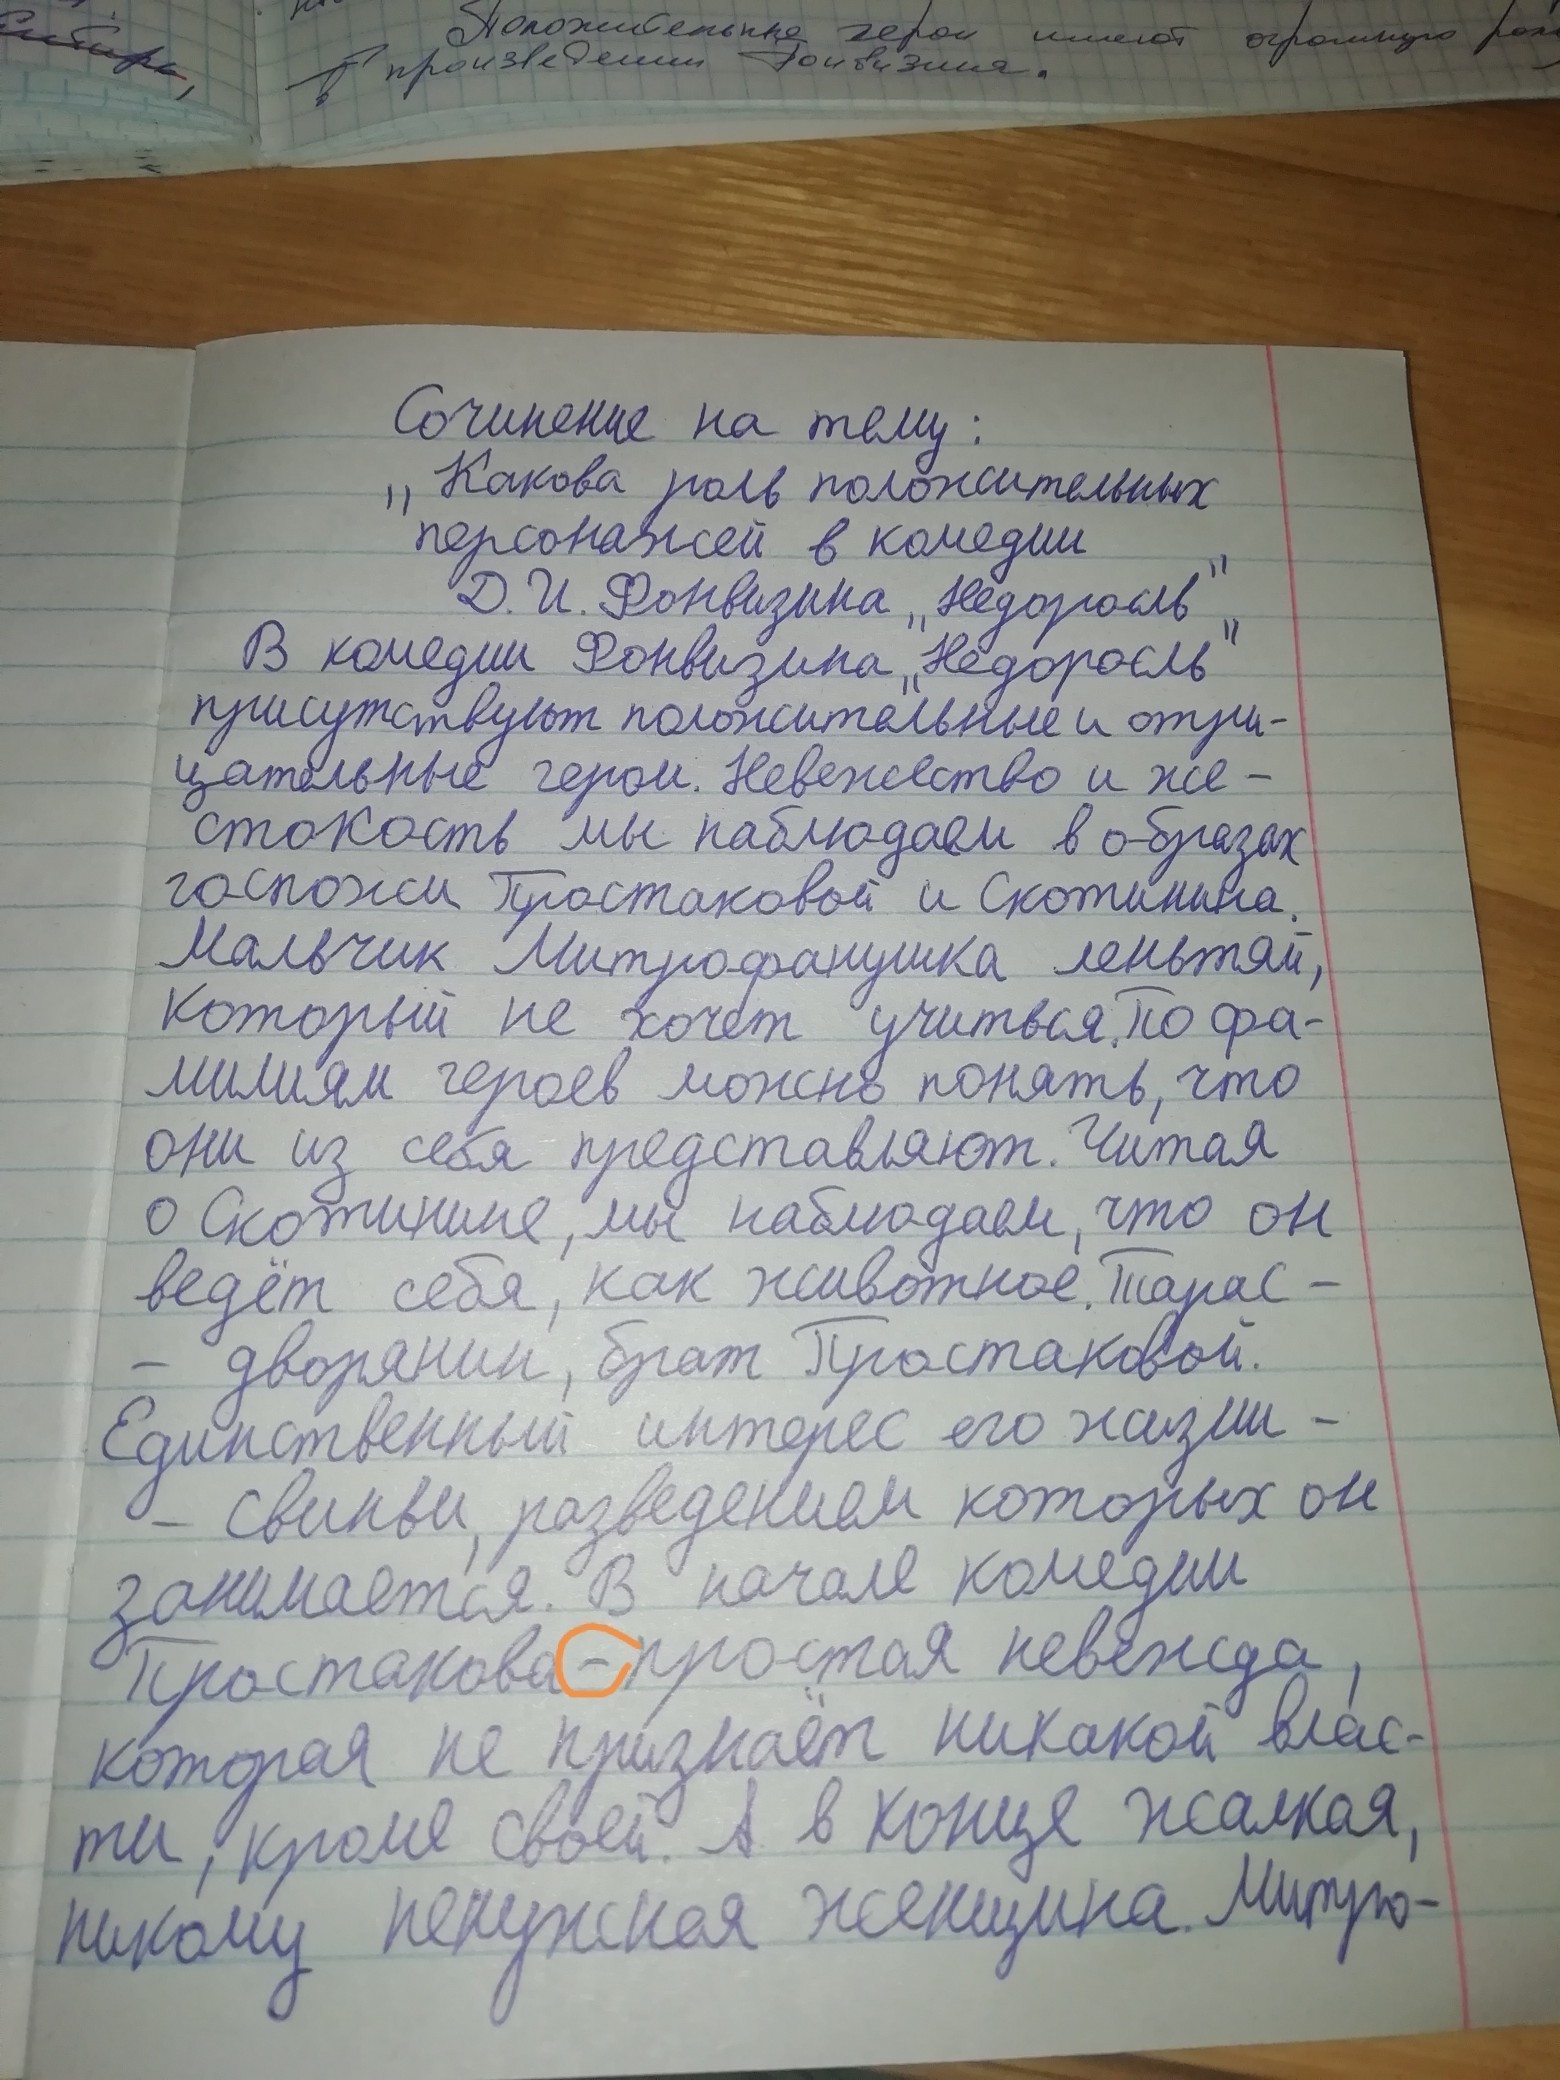 Положительные герои имеют огромную роль
произведении Фонвизина.
Сочинение на тему:
„Какова роль положительных
персонажей в комедии
Д.И. Фонвизина „Недоросль"
В комедии Фонвизина „Недоросль"
присутствуют положительные и отри-
цательные герои. Невежество и же-
стокость мы наблюдаем в образах
госпожи Простаковой и Скотинина.
Мальчик Митрофанушка леньтяй,
который не хочет учиться. По фа-
милиям героев можно понять, что
они из себя представляют. Читая
о Скотинине, мы наблюдаем, что он
ведёт себя, как животное. Тарас -
- дворянин, брат Простаковой.
Единственный интерес его жизни -
- свиньи, разведением которых он
занимается. В начале комедии
Простакова - простая невежда,
которая не признаёт никакой влас-
ти, кроме своей. А в конце жалкая,
никому ненужная женщина. Митро-